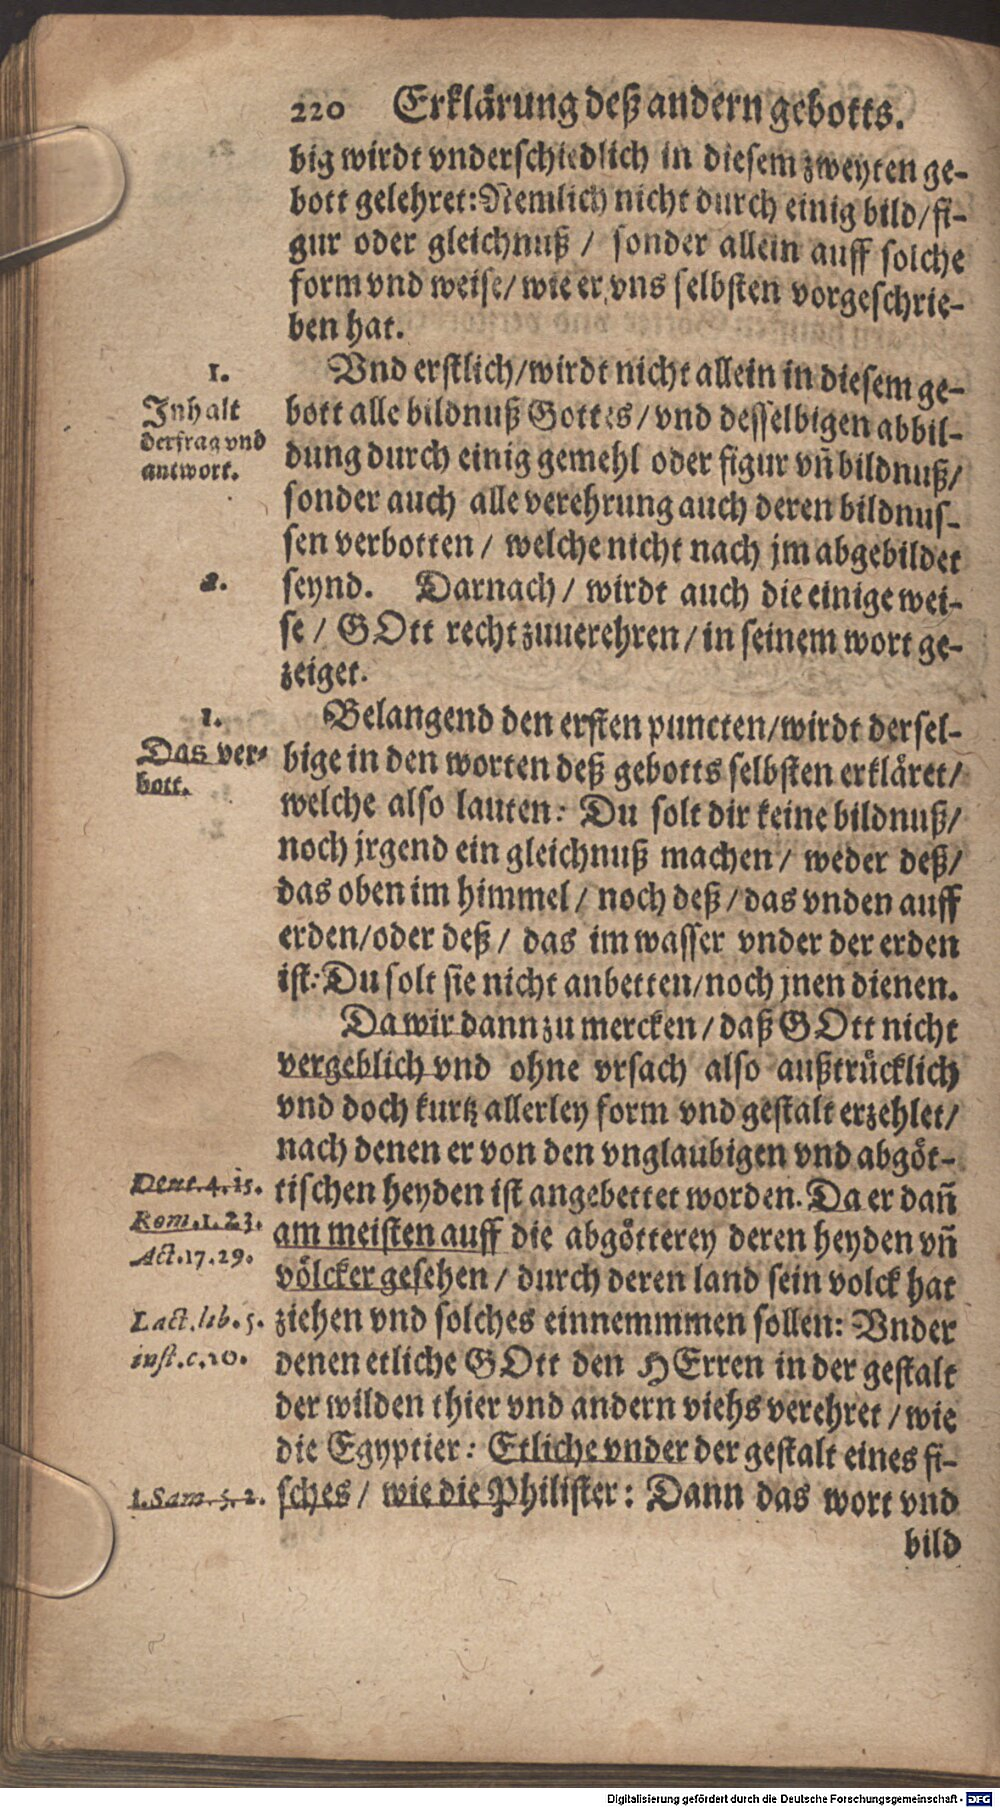 220 Erklårung deß andern gebotts.
big wirdt vnderschiedlich in diesem zweyten ge-
bott gelehret: Nemlich nicht durch einig bild/fi-
gur oder gleichnuß / sonder allein auff solche
form vnd weise/ wie er vns selbsten vorgeschrie-
ben hat.
1.
Inhalt
der frag vnd
antwort.
Vnd erstlich/wirdt nicht allein in diesem ge-
bott alle bildnuß Gottes/ vnd desselbigen abbil-
dung durch einig gemehl oder figur vñ bildnuß/
sonder auch alle verehrung auch deren bildnus-
sen verbotten / welche nicht nach jm abgebildet
2.
seynd. Darnach / wirdt auch die einige wei-
se / GOtt recht zuuerehren / in seinem wort ge-
zeiget.
1.
Das ver-
bott.
Belangend den ersten puncten/wirdt dersel-
bige in den worten deß gebotts selbsten erklåret/
welche also lauten: Du solt dir keine bildnuß/
noch jrgend ein gleichnuß machen/ weder deß/
das oben im himmel / noch deß / das vnden auff
erden/oder deß / das im wasser vnder der erden
ist: Du solt sie nicht anbetten/noch jnen dienen.
Da wir dann zu mercken / daß GOtt nicht
vergeblich vnd ohne vrsach also außtrůcklich
vnd doch kurtz allerley form vnd gestalt erzehlet/
nach denen er von den vnglaubigen vnd abgŏt-
Deut. 4. 15.
Rom. 1. 23.
Act. 17. 29.
tischen heyden ist angebettet worden. Da er dañ
am meisten auff die abgŏtterey deren heyden vñ
vŏlcker gesehen / durch deren land sein volck hat
Lact. lib. 5.
inst. c. 20.
ziehen vnd solches einnemmmen sollen: Vnder
denen etliche GOtt den HErren in der gestalt
der wilden thier vnd andern viehs verehret / wie
die Egyptier: Etliche vnder der gestalt eines fi-
1. Sam. 5. 2.
sches / wie die Philister: Dann das wort vnd
bild
Digitalisierung gefördert durch die Deutsche Forschungsgemeinschaft - DFG